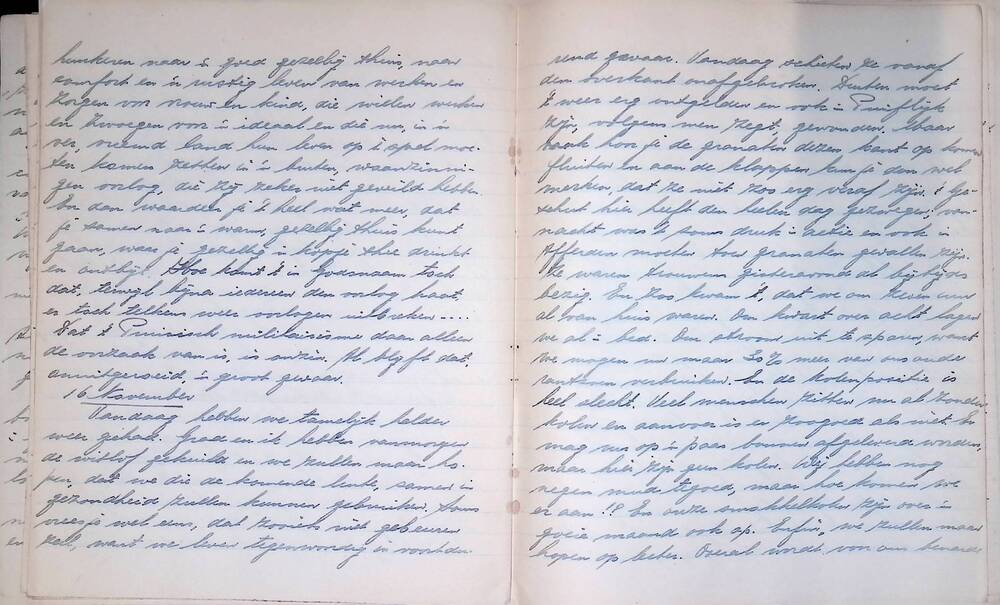 hunkeren naar 'n goed gezellig thuis, naar
comfort en 'n rustig leven van werken en
zorgen voor vrouw en kind, die willen werken
en zwoegen voor 'n ideaal en die nu, in 'n
ver, vreemd land hun leven op 't spel moe-
ten komen zetten in 'n, waanzinni-
gen oorlog, die zij zeker niet gewild hebben.
En dan waardeer je 't heel wat meer, dat
je samen naar 'n warm, gezellig thuis kunt
gaan, waar je gezellig 'n kopje thee drinkt
en ontbijt. Hoe kan 't in Godsnaam toch
dat, terwijl bijna iedereen den oorlog haat,
er toch telkens weer oorlogen uitbreken ....
Dat 't Pruisisch militarisme daar alleen
de oorzaak van is, is onzin. Al blijft dat,
onuitgeroeid, 'n groot gevaar.
16 November
Vandaag hebben we tamelijk helder
weer gehad. Graad en ik hebben vanmorgen
de witlof gekuild en we zullen maar ho-
pen, dat we die de komende lente, samen in
gezondheid zullen kunnen gebruiken. Soms
vrees je wel eens, dat zooiets niet gebeuren
zal, want we leven tegenwoordig in voortdu-
rend gevaar. Vandaag schieten ze vanaf
den overkant onafgebroken. Drunten moet
't weer erg ontgelden en ook is Puiflijk
zijn, volgens men zegt, gewonden. Maar
vaak hoor je de granaten dezen kant op komen
fluiten en aan de klappen kun je dan wel
merken, dat ze niet zoo erg veraf zijn. 't Ge-
schut hier heeft den heelen dag gezwegen; van-
nacht was 't soms druk in actie en ook in
Afferden moeten toen granaten gevallen zijn.
Ze waren trouwens gisteravond al bijtijds
bezig. En zoo kwam 't, dat we om zeven uur
al van huis waren. Om kwart over acht lagen
we al in bed. Om stroom uit te sparen, want
we mogen nu maar 30% meer van ons oude
rantsoen verbruiken. En de kolenpositie is
heel slecht. Veel menschen zitten nu al zonder
kolen en aanvoer is er zoogoed als niet. Er
mag nu op 'n paar bonnen afgeleverd worden,
maar hier zijn geen kolen. Wij hebben nog
negen mud tegoed, maar hoe komen we
er aan!? En onze smokkelkolen zijn over 'n
goeie maand ook op. Enfin, we zullen maar
hopen op beter. Overal wordt voor ons bewaard